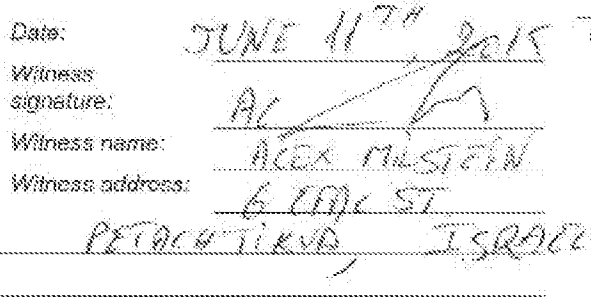 Date: JUNE 11TH, 2015
Witness
signature:
Witness name: ALEX MILSTEIN
Witness address: 6 EMIL ST
PETACH TIKVA, ISRAEL